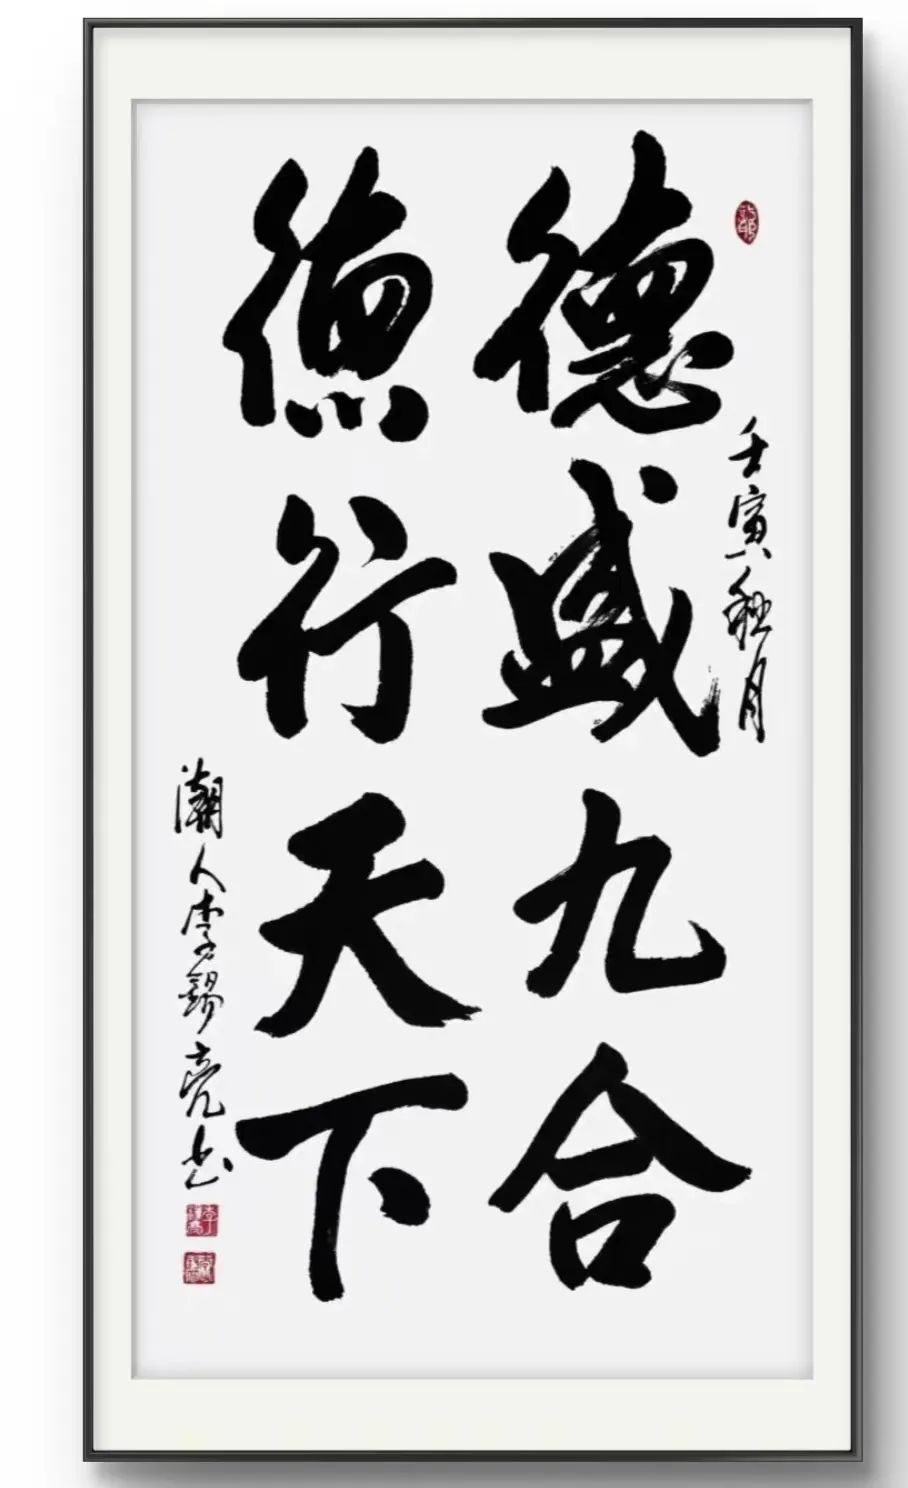 壬寅秋月
德盛九合
德行天下
潮人李錫亮书